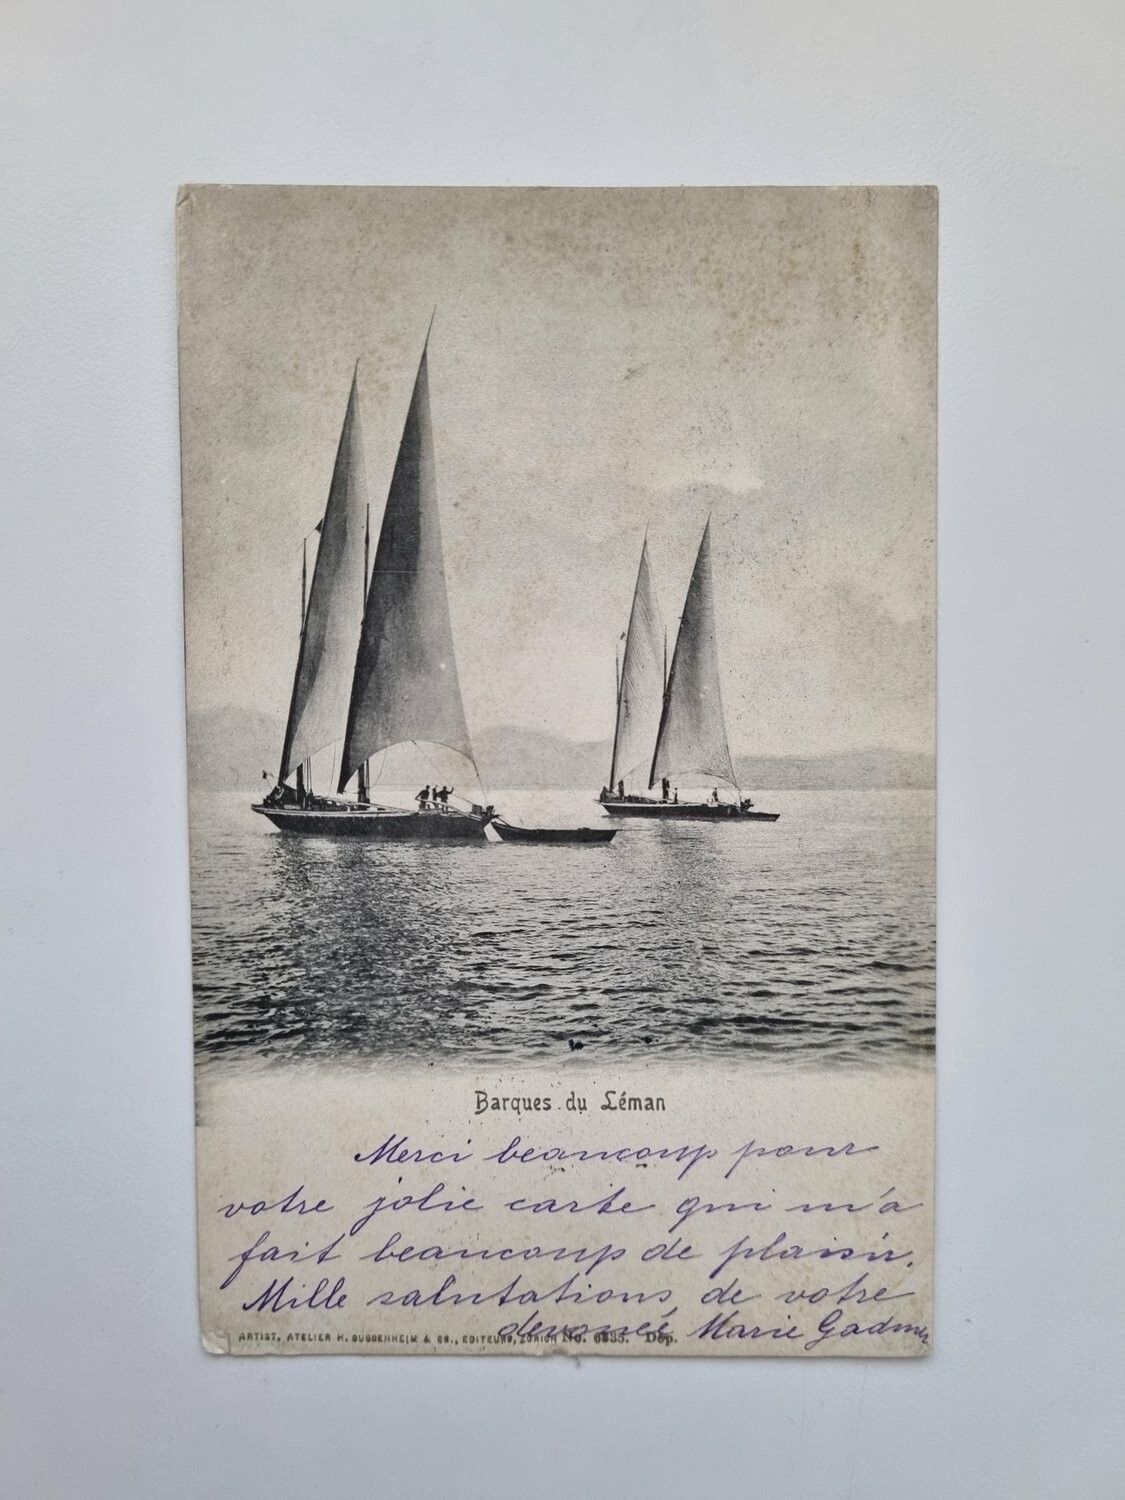 Barques du Léman
Merci beaucoup pour
votre jolie carte qui m'a
fait beaucoup de plaisir.
Mille salutations de votre
devouée Marie Gadmer
ARTIST. ATELIER H. GUGGENHEIM & CO., EDITEURS, ZÜRICH No. Dép.